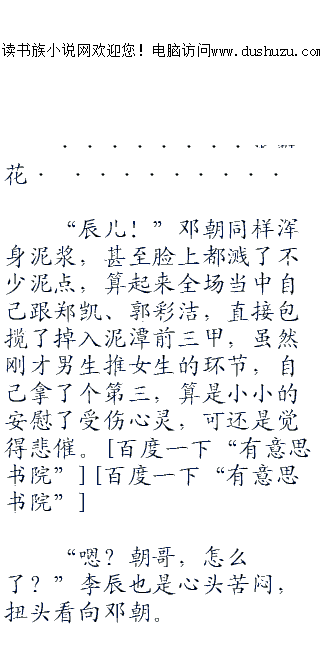 读书族小说网欢迎您！电脑访问www.dushuzu.com
花· ·········
“辰儿！”邓朝同样浑
身泥浆，甚至脸上都溅了不
少泥点，算起来全场当中自
己跟郑凯、郭彩洁，直接包
揽了掉入泥潭前三甲，虽然
刚才男生推女生的环节，自
己拿了个第三，算是小小的
安慰了受伤心灵，可还是觉
得悲催。[百度一下“有意思
书院”][百度一下“有意思
书院”]
“嗯？朝哥，怎么
了？”李辰也是心头苦闷，
扭头看向邓朝。